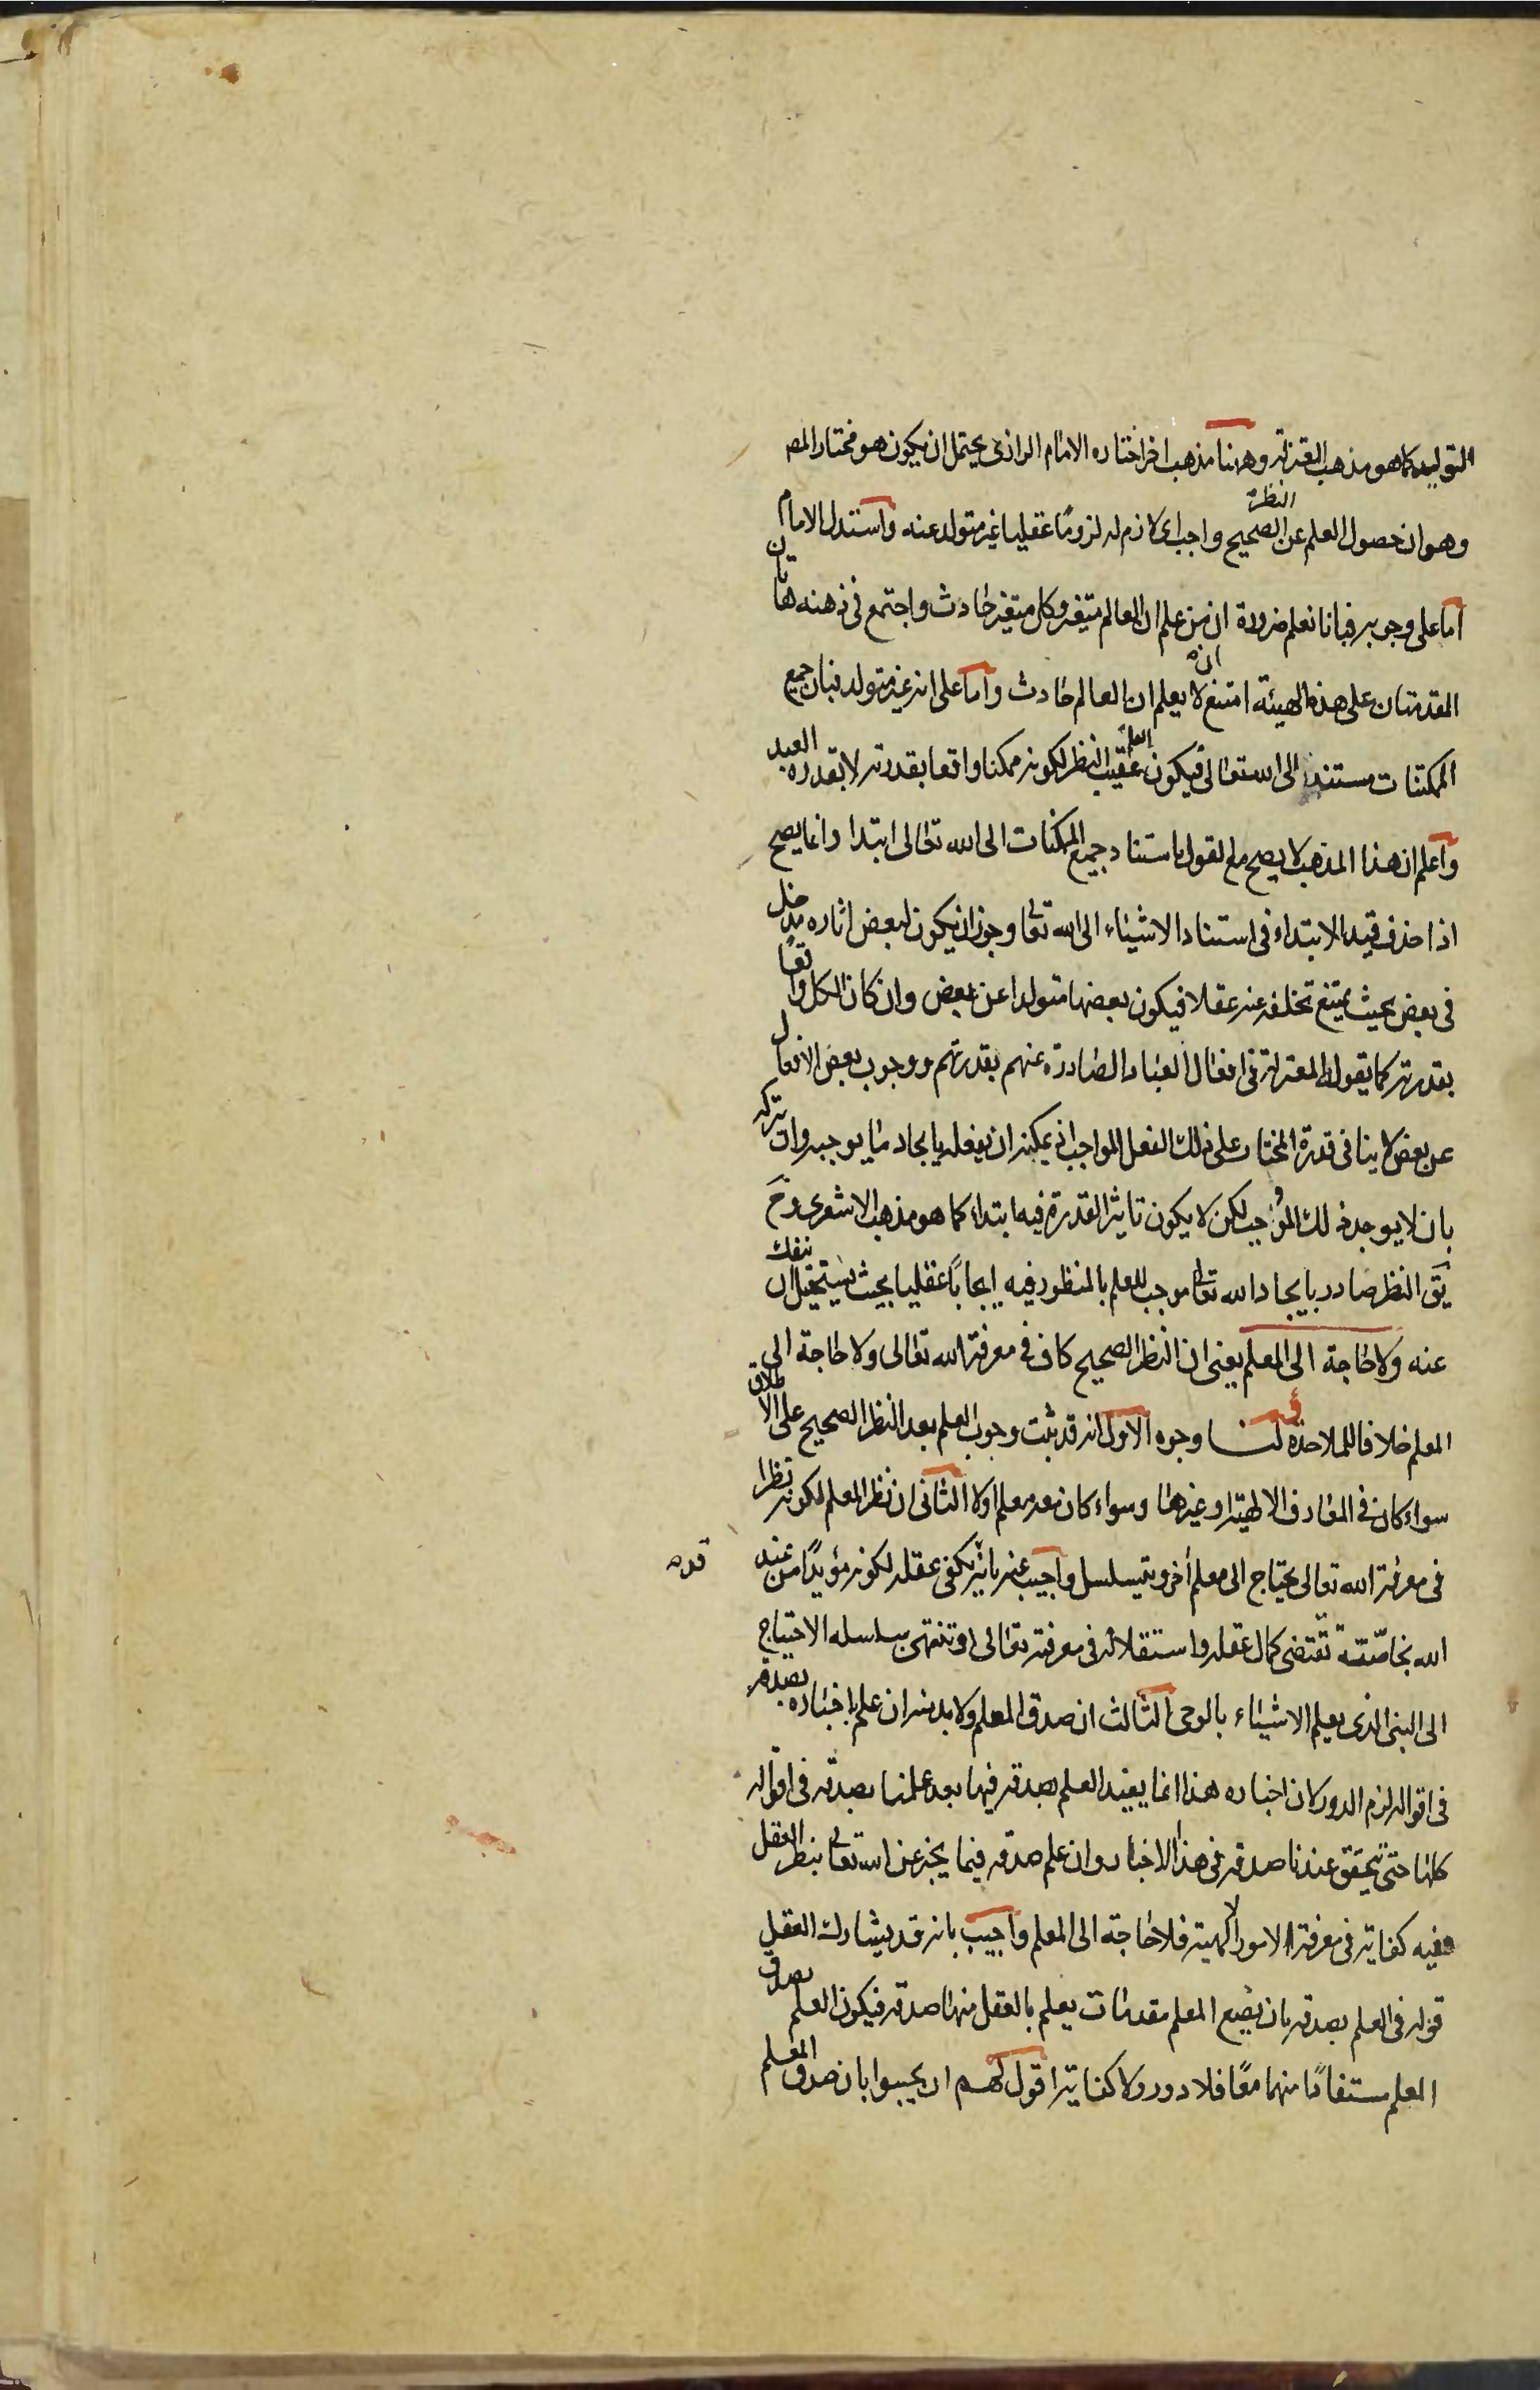 التوليد كما هو مذهب المعتزلة وههنا مذهب اخر اختاره الامام الرازى يحتمل ان يكون هو مختار المص
وهو ان حصول العلم عن النظر الصحيح واجب اى لازم له لزومًا عقليا غير متولد عنه واستدل الامام
اما على وجوبه فبانا نعلم ضرورة ان من علم ان العالم متغير وكل متغير حادث واجتمع فى ذهنه هاتان
المقدمتان على هذه الهيئة امتنع ان لا يعلم ان العالم حادث واما على انه غير متولد فبان جميع
الممكنات مستندة الى الله تعالى فيكون العلم عقيب النظر لكونه ممكنا واقعا بقدرته لا بقدرة العبد
واعلم ان هذا المذهب لا يصح مع القول باستناد جميع الممكنات الى الله تعالى ابتدا وانما يصح
اذا حذف قيد الابتداء فى استناد الاشياء الى الله تعا وجوز ان يكون لبعض اثاره مدخل
فى بعض بحيث يمتنع تخلفه عنه عقلا فيكون بعضها متولدا عن بعض وان كان الكل واقعًا
بقدرته كما يقوله المعتزلة فى افعال العباد الصادرة عنهم بقدرتهم ووجوب بعض الافعال
عن بعض لا ينافى قدرة المختار على ذلك الفعل الواجب اذ يمكنه ان يفعله بايجاد ما يوجبه وان يتركه
بان لا يوجد ذلك الموجب لكن لا يكون تاثير القدرة فيه ابتداء كما هو مذهب الاشعرى وح
يق النظر صادر بايجاد الله تعالى موجب للعلم بالمنظور فيه ايجابًا عقليا بحيث يستحيل ان ينفك
عنه ولا حاجة الى المعلم يعنى ان النظر الصحيح كاف فى معرفة الله تعالى ولا حاجة الى
المعلم خلافا للملاحدة لنا وجوه الاول انه قد ثبت وجوب العلم بعد النظر الصحيح على الاطلاق
سواء كان فى المعارف الالهية او غيرها وسواء كان معه معلم او لا الثانى ان نظر المعلم لكونه نظرا
فى معرفة الله تعالى يحتاج الى معلم أخر ويتسلسل واجيب عنه بانه يكفى عقله لكونه مؤيدًا من عند
الله بخاصّة تقتضى كمال عقله واستقلاله فى معرفته تعالى او تنتهى سلسله الاحتياج
الى النبى الذى يعلم الاشياء بالوحى الثالث ان صدق المعلم ولا بد منه ان علم باخباره بصدقه
فى اقواله لزم الدور لان اخباره هذا انما يفيد العلم بصدقه فيها بعد علمنا بصدقه فى اقواله
كلها حتى يتحقق عندنا صدقه فى هذا الاخبار وان علم صدقه فيما يخبر عن الله تعالى بنظر العقل
ففيه كفاية فى معرفة الامور الالهية فلا حاجة الى المعلم واجيب بانه قد يشارك العقل
قوله فى العلم بصدقه بان يضع المعلم مقدمات يعلم بالعقل منها صدقه فيكون العلم بصدق
المعلم مستفادًا منهما معًا فلا دور ولا كفاية اقول لهم ان يجيبوا بان صدق المعلم